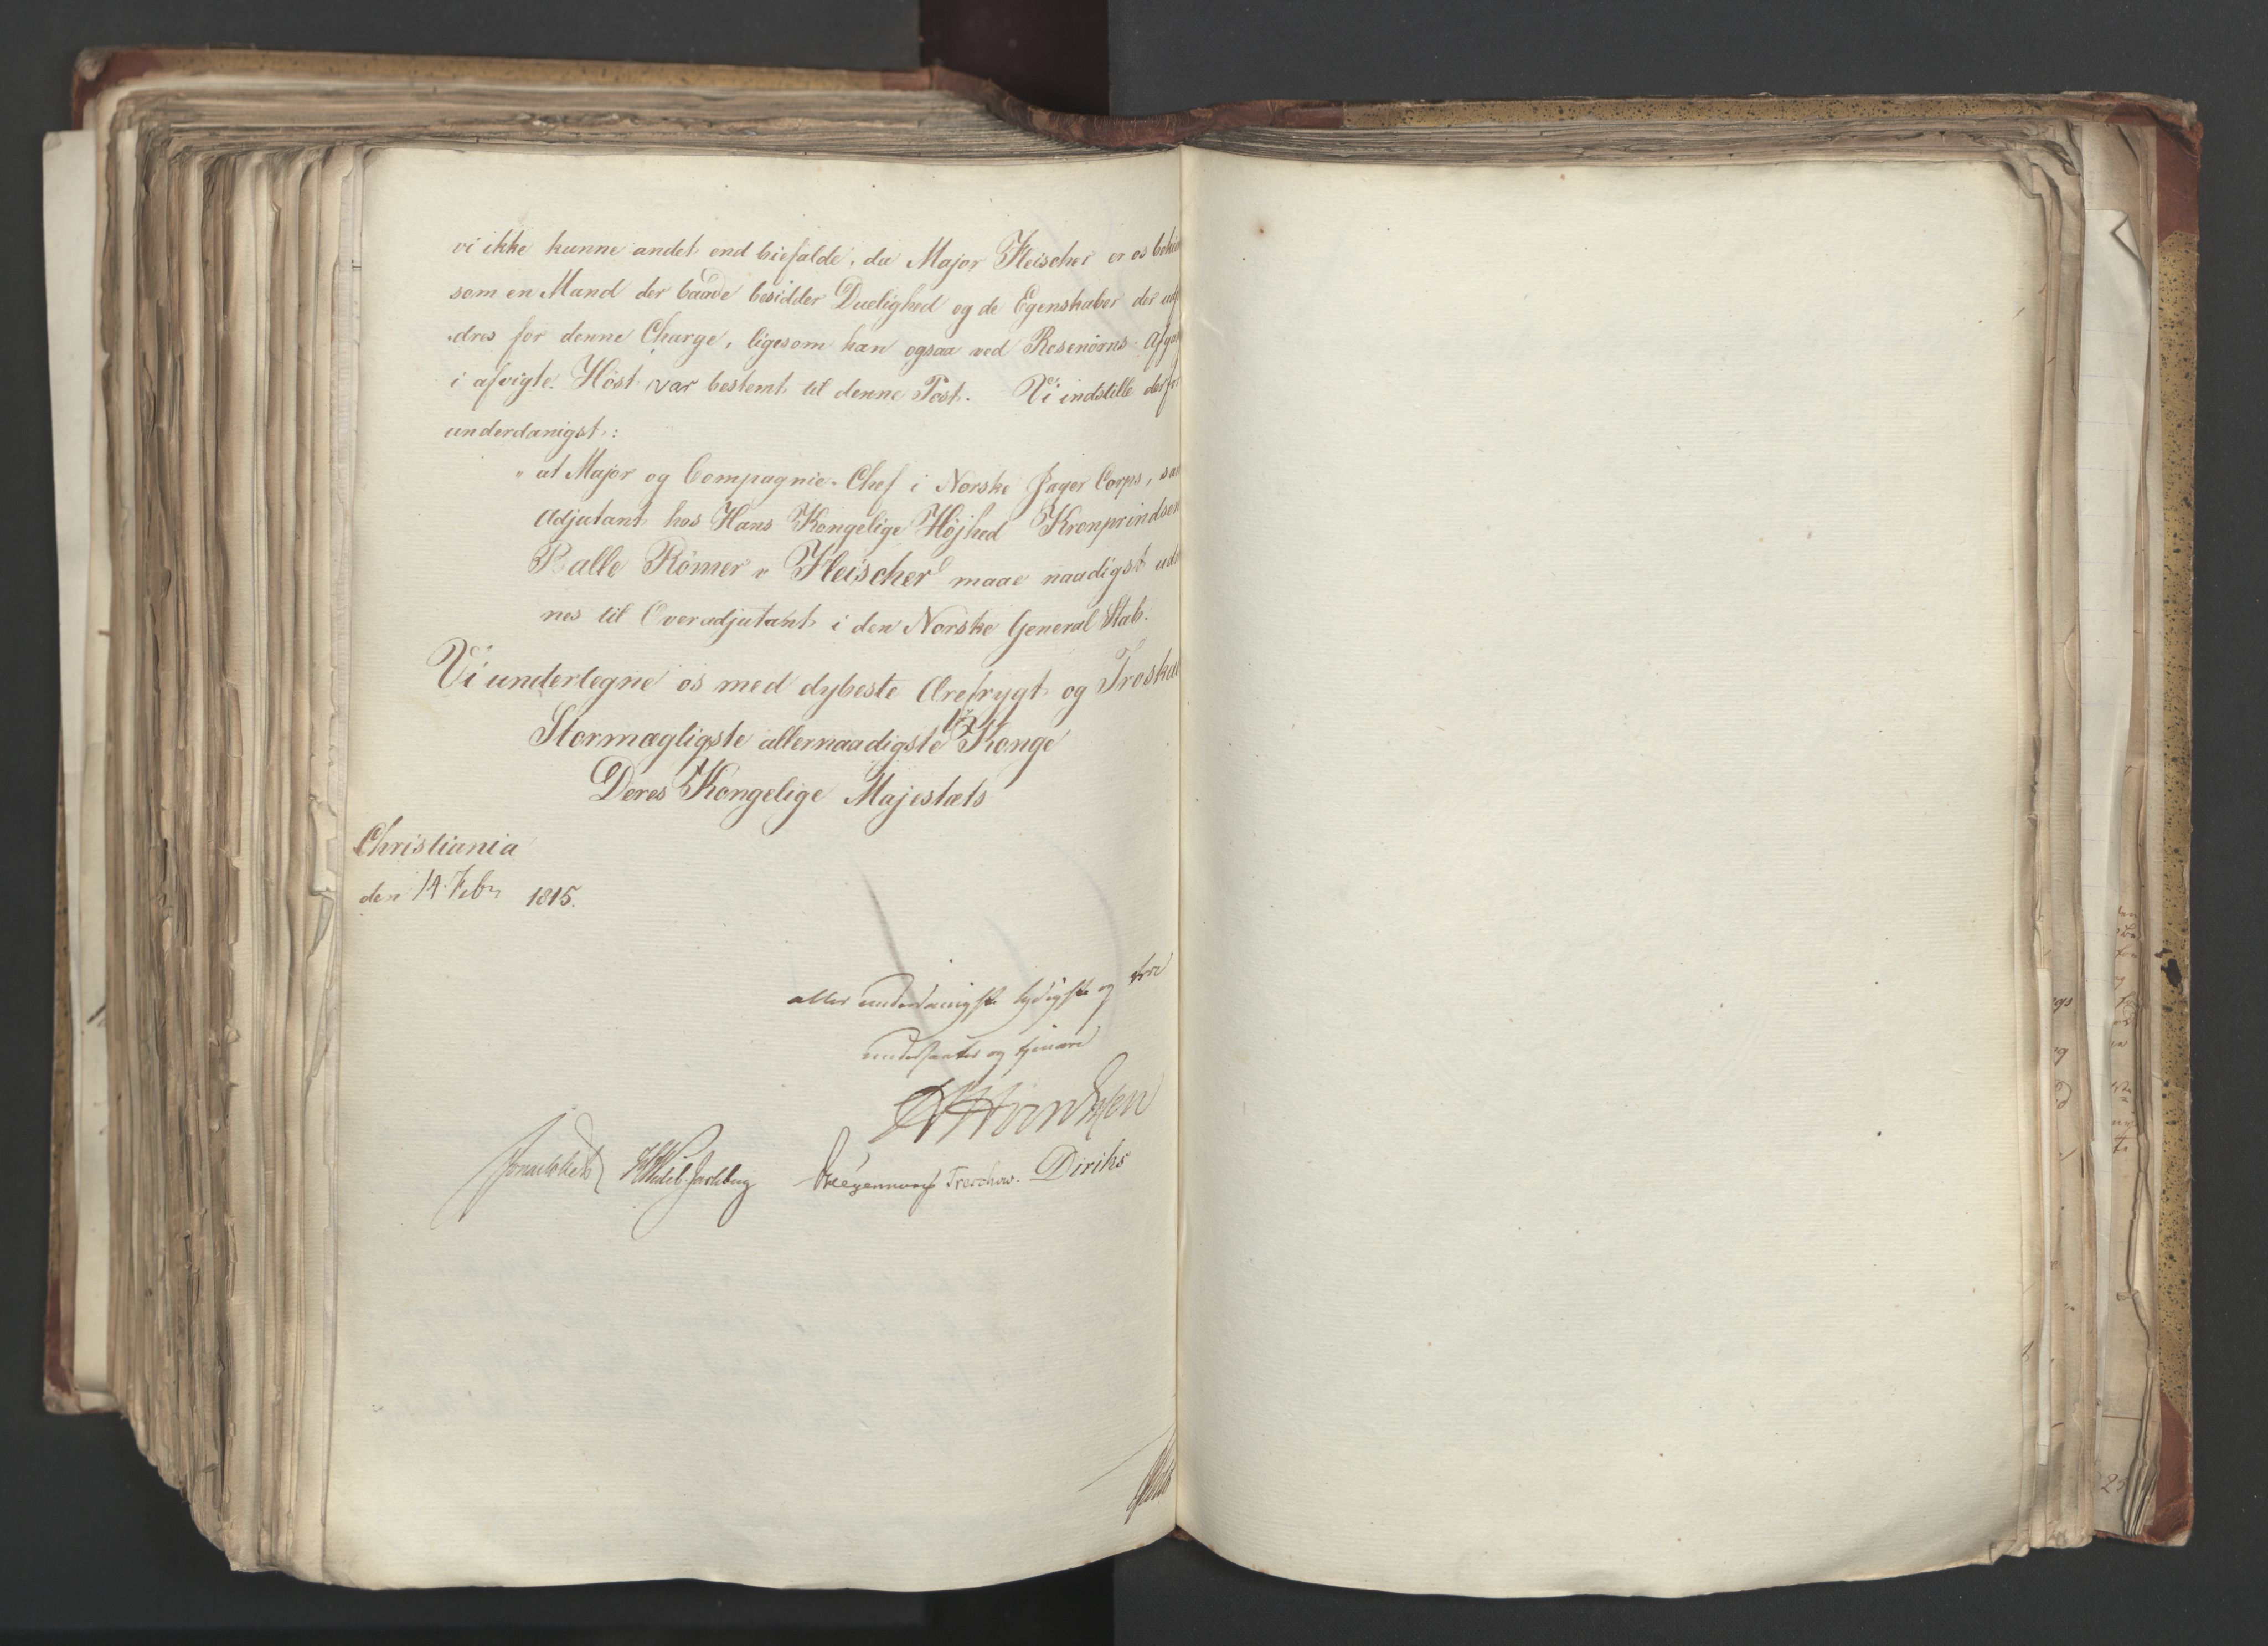 vi ikke kunne andet end biefalde, da Major Fleischer er os bekien
som en Mand der baade besidder Duelighed og de Egenskaber der udf
dres for denne Charge, ligesom han ogsaa ved Rosenörns Afgan
i afvigte Höst var bestemt til denne Post. Vi indstille derfor
underdanigst:
" at Major og Compagnie-Chef i Norske Jæger Corps, sam
Adjutant hos Hans Kongelige Højhed Kronprindsen
Balle Römer v Fleischer maae naadigst udn
nes til Overadjutant i den Norske General Stab.
Vi undertegne os med dybeste Ærefrygt og Troskab
Stormægtigste allernaadigste Konge
Deres Kongelige Majestæts
Christiania
den 14 Febr 1815.
aller underdanigste lydigste og troe
undersaatter og tjenere
Treschow. Diriks